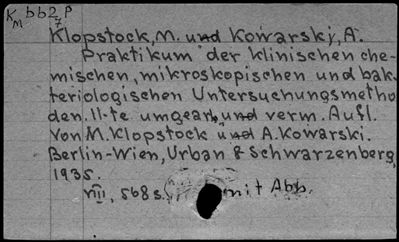 K bb2 P
M 7
Klopstock, M. und Kowarskj, A.
Praktikum der klinischen che-
mischen, mikroskopischen und bak-
teriologischen Untersuchungsmetho
den. 11-te umgearb. und verm. Aufl.
Von M. Klopstock und A. Kowarski.
Berlin-Wien, Urban & Schwarzenberg,
1935.
VIII, 568 s. mit Abb.